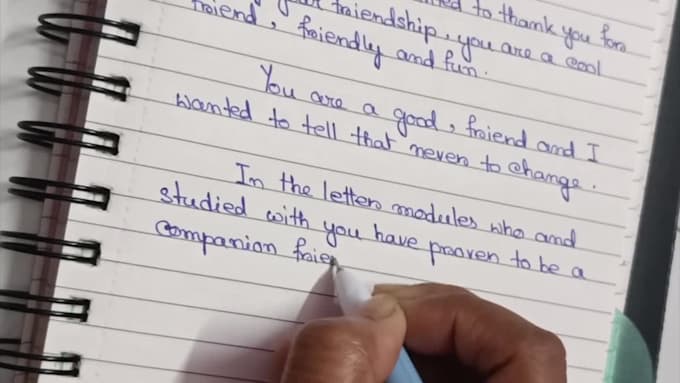 to thank you for
your friendship, you are a cool
friend, friendly and fun.
You are a good, friend and I
wanted to tell that never to change.
In the letter modules who and
studied with you have prooven to be a
companion frie